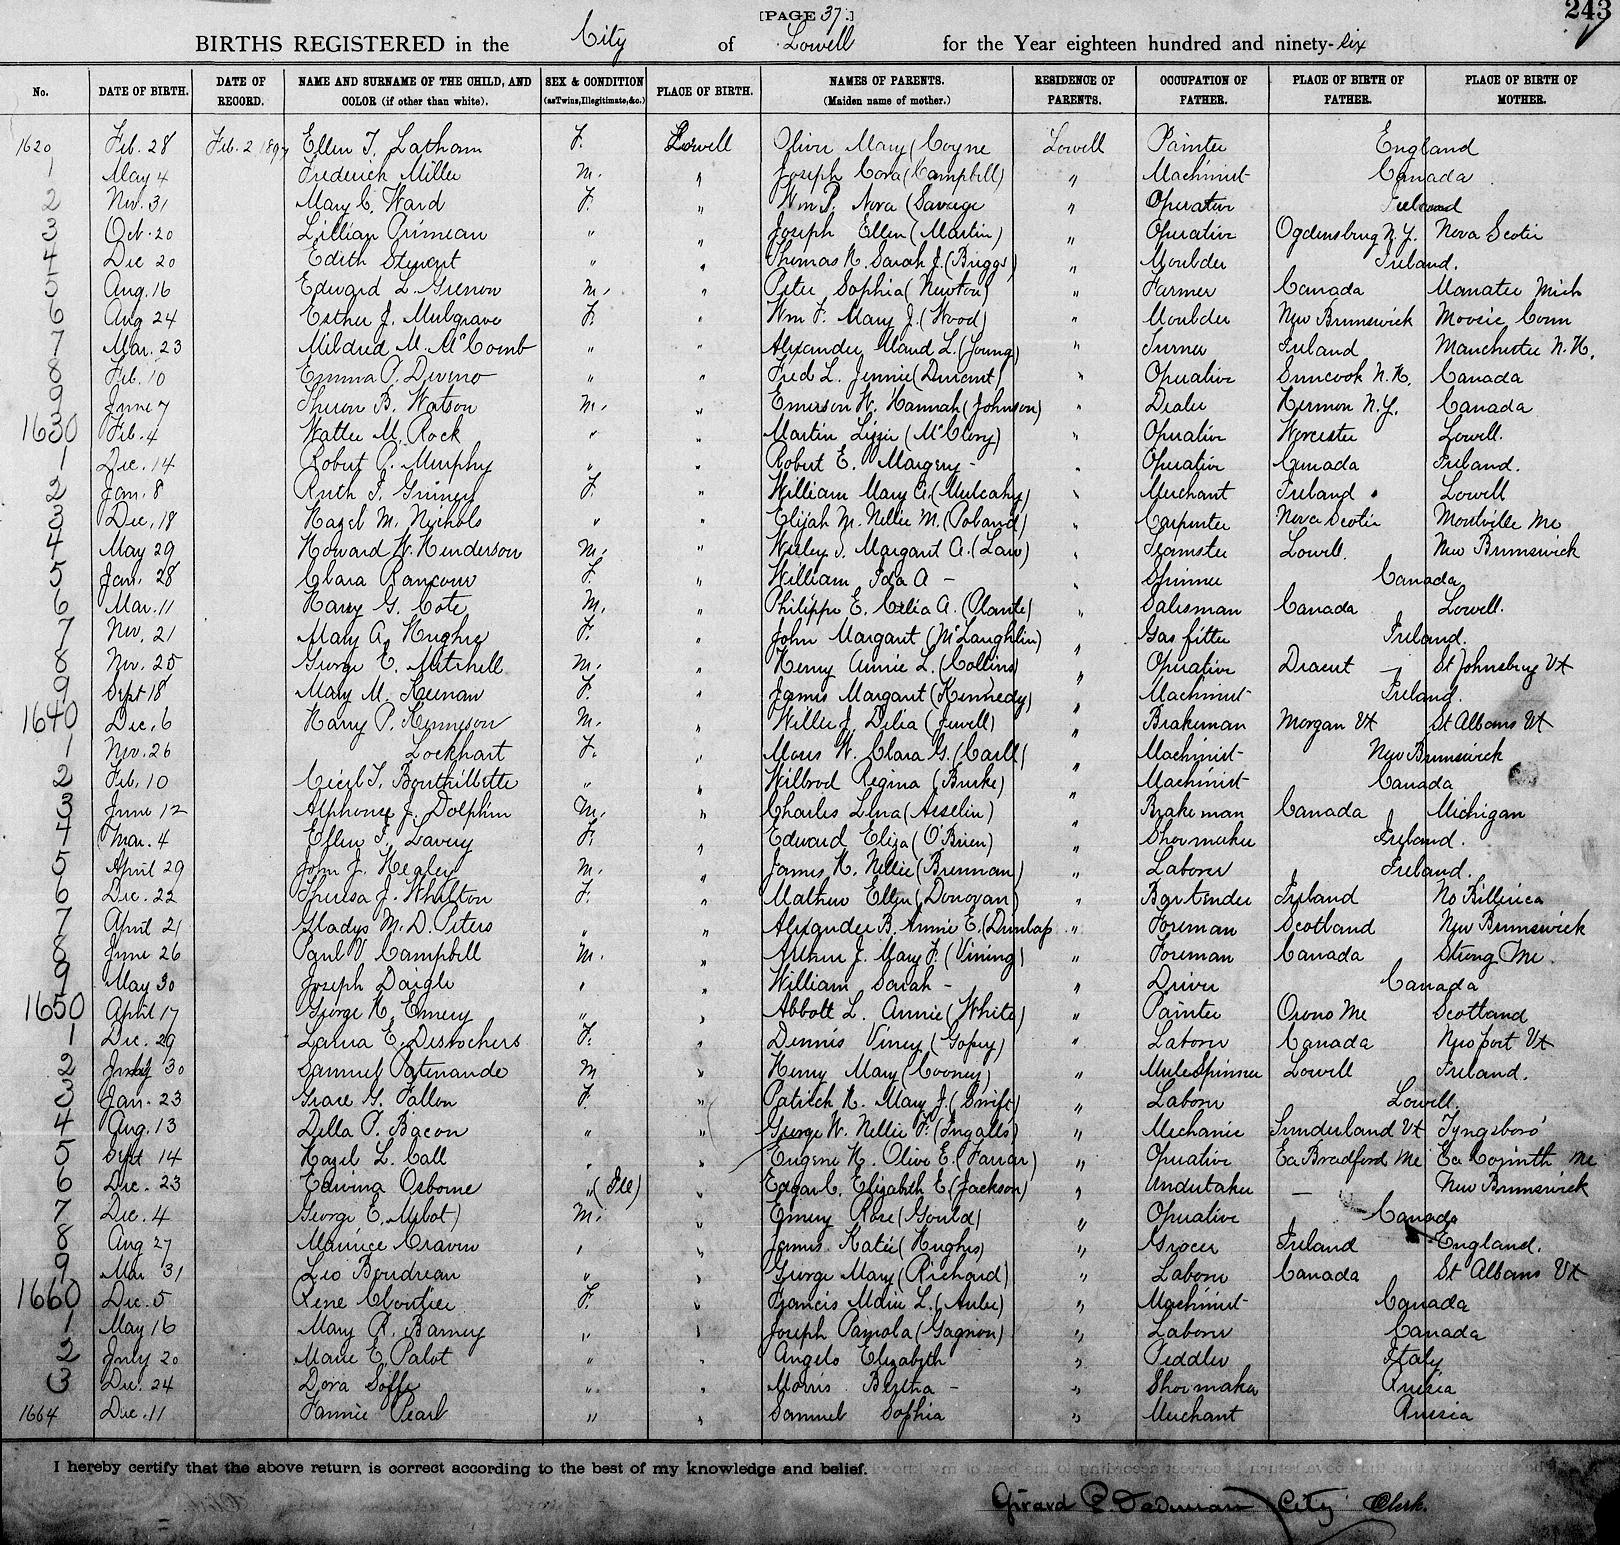 [PAGE 37.]
243
BIRTHS REGISTERED in the City of Lowell for the Year eighteen hundred and ninety-six
No. DATE OF BIRTH. DATE OF RECORD. NAME AND SURNAME OF THE CHILD, AND COLOR (if other than white). SEX & CONDITION (as Twins, Illegitimate, &c.) PLACE OF BIRTH. NAMES OF PARENTS. (Maiden name of mother.) RESIDENCE OF PARENTS. OCCUPATION OF FATHER. PLACE OF BIRTH OF FATHER. PLACE OF BIRTH OF MOTHER.
1620 Feb. 28 Feb. 2 1897 Ellen T. Latham F. Lowell Oliver Mary (Coyne Lowell Painter England
1 May 4 Frederick Miller M. " Joseph Cora (Campbell) " Machinist Canada
2 Nov. 31 Mary C. Ward F. " Wm P. Nora (Savage " Operative Ireland
3 Oct. 20 Lillian Primeau " " Joseph Ellen (Martin) " Operative Ogdensburg N.Y. Nova Scotia
4 Dec 20 Edith Stewart " " Thomas H. Sarah J. (Briggs) " Moulder Ireland.
5 Aug. 16 Edward L. Grenon M. " Peter Sophia (Newton) " Farmer Canada Manatee Mich
6 Aug 24 Esther J. Mulgrave F. " Wm F. Mary J. (Wood) " Moulder New Brunswick Conn
7 Mar. 23 Mildred M. McComb " " Alexander Maud L. (Young) " Turner Ireland Manchester N.H.
8 Feb. 10 Emma P. Devino " " Fred L. Jennie (Durant) " Operative Suncook N.H. Canada
9 June 7 Theron B. Watson M. " Emerson W. Hannah (Johnson) " Dealer Hermon N.Y. Canada
1630 Feb. 4 Walter M. Rock " " Martin Lizzie (McClory) " Operative Worcester Lowell.
1 Dec. 14 Robert P. Murphy " " Robert E. Margery - " Operative Canada Ireland.
2 Jan. 8 Ruth I. F. " William Mary A. (Mulcahy) " Merchant Ireland Lowell
3 Dec. 18 Hazel M. Nichols " " Elijah M. Nellie M. (Poland) " Carpenter Nova Scotia Montville Me
4 May 29 Howard W. Henderson M. " Wesley T. Margaret A. (Law) " Teamster Lowell. New Brunswick
5 Jan. 28 Clara Rancour F. " William Ida A - " Spinner Canada
6 Mar. 11 Harry G. Cote M. " Philippe E. Celia A. (Plante) " Salesman Canada Lowell.
7 Nov. 21 Mary A. Hughes F. " John Margaret (McLaughlin) " Gas fitter Ireland.
8 Nov. 25 George E. Mitchell M. " Henry Annie L. (Collins) " Operative Dracut St Johnsbury Vt
9 Sept 18 Mary M. Keenan F. " James Margaret (Kennedy) " Machinist Ireland.
1640 Dec. 6 Harry P. Kennyson M. " Willie J. Delia (Jewell) " Brakeman Morgan Vt St Albans Vt
1 Nov. 26 Lockhart F. " Moses W. Clara G. (Carll) " Machinist New Brunswick
2 Feb. 10 Cecil T. Bouthillette " " Wilbrod Regina (Burke) " Machinist Canada
3 June 12 Alphonse J. Dolphin M. " Charles Lena (Asselin) " Brakeman Canada Michigan
4 Mar. 4 Ellen F. Lavery F. " Edward Eliza (O'Brien) " Shoemaker Ireland.
5 April 29 John J. Healey M. " James H. Nellie (Brennan) " Laborer Ireland.
6 Dec. 22 Theresa J. Whitton F. " Mathew Ellen (Donovan) " Bartender Ireland No Billerica
7 April 21 Gladys M. D. Peters " " Alexander B. Annie E. (Dunlap " Foreman Scotland New Brunswick
8 June 26 Paul V Campbell M. " Arthur J. Mary F. (Vining) " Foreman Canada Strong Me.
9 May 30 Joseph Daigle " " William Sarah - " Driver Canada
1650 April 17 George H. Emery " " Abbott L. Annie (White) " Painter Orono Me Scotland
1 Dec. 29 Laura E. Desrochers F. " Dennis Viney (Gopey) " Laborer Canada Newport Vt
2 30 Samuel Patenaude M " Henry Mary (Cooney) " Mule Spinner Lowell Ireland.
3 Jan. 23 Grace G. Fallon F. " Patrick H. Mary J. (Swift) " Laborer Lowell.
4 Aug. 13 Della P. Bacon " " George W. Nellie F. (Ingalls) " Mechanic Sunderland Vt Tyngsboro'
5 Sept 14 Hazel L. Call " " Eugene H. Olive E. (Farrar) " Operative Ea Bradford Me Ea Corinth Me
6 Dec. 23 Edwina Osborne " (Ille) " Edgar C. Elizabeth E. (Jackson) " Undertaker — New Brunswick
7 Dec. 4 George E. M. " Emery Rose (Gould) " Operative Canada
8 Aug 27 Maurice Craven " " James Katie (Hughes) " Grocer Ireland England.
9 Mar 31 Leo Boudreau " " George Mary (Richard) " Laborer Canada St Albans Vt
1660 Dec. 5 Rene Cloutier F. " Francis Marie L. (Aube) " Machinist Canada
1 May 16 Mary R. Barney " " Joseph Pamola (Gagnon) " Laborer Canada
2 July 20 Marie E. Palot " " Angelo Elizabeth " Peddler Italy
3 Dec. 24 Dora Soffe " " Morris Bertha - " Shoemaker Russia
1664 Dec. 11 Fannie Pearl " " Samuel Sophia " Merchant Russia
I hereby certify that the above return is correct according to the best of my knowledge and belief.
Girard P. Dadman City Clerk.